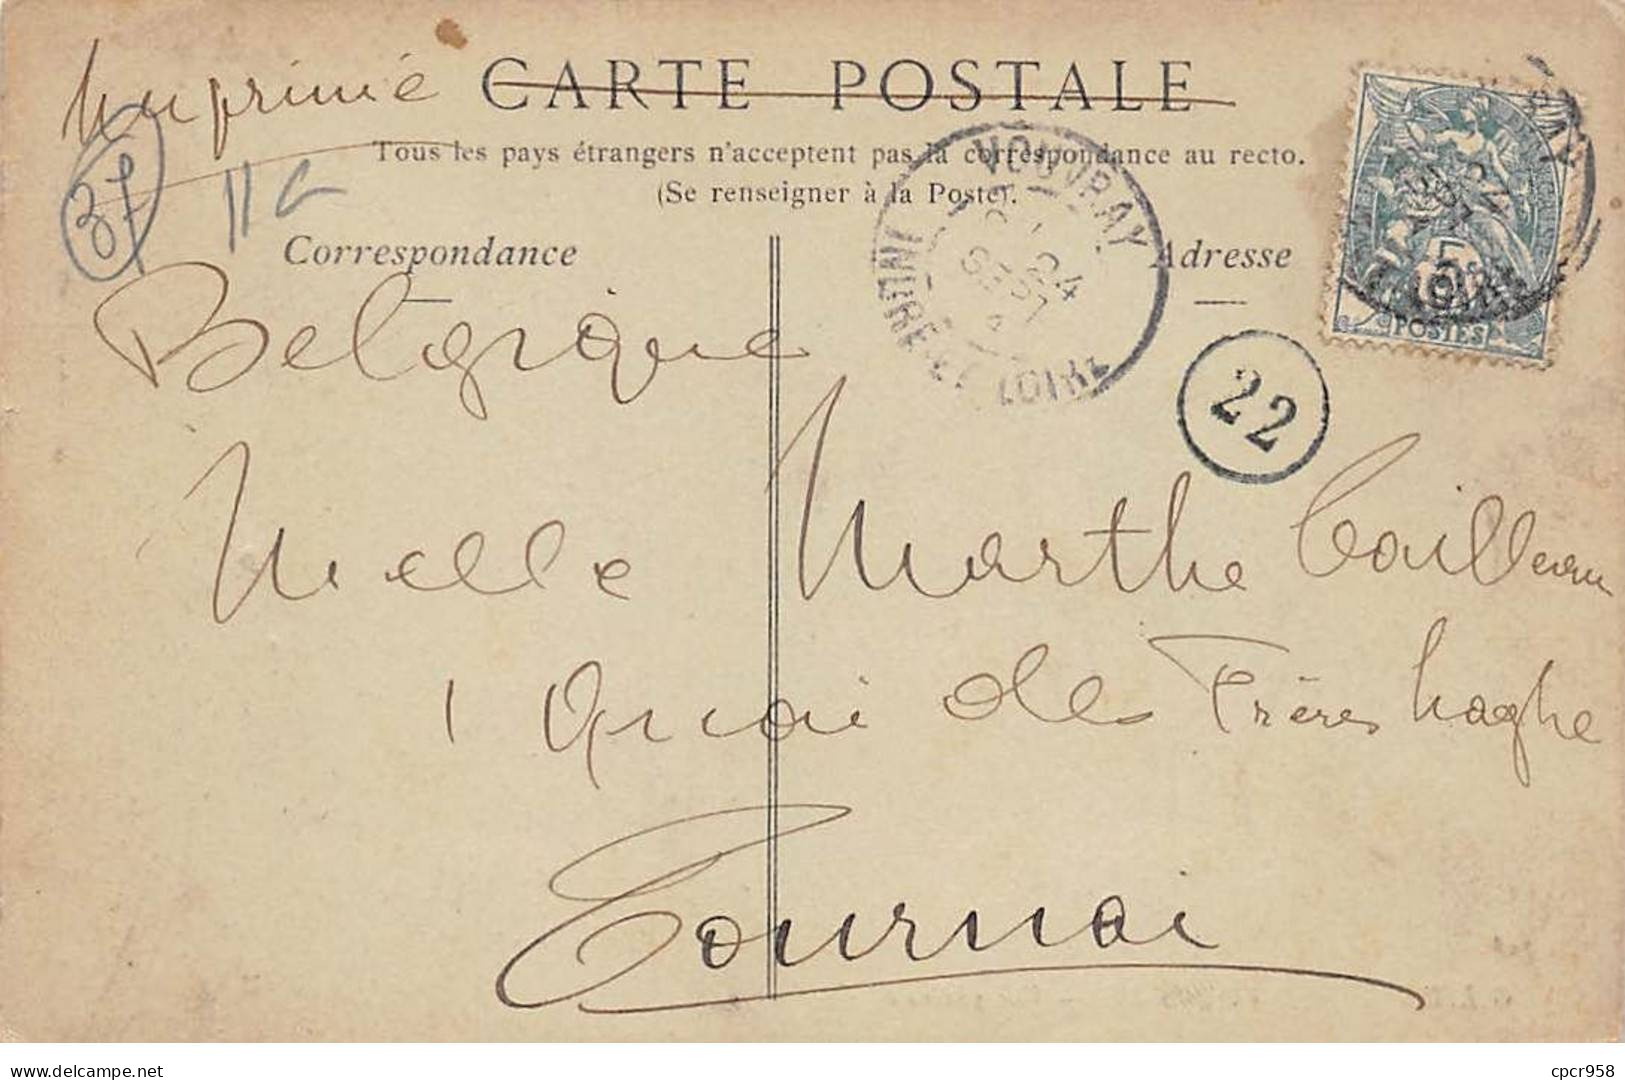 Imprimé CARTE POSTALE
Tous les pays étrangers n'acceptent pas la correspondance au recto.
(Se renseigner à la Poste).
37
11 G
Correspondance
Adresse
VOUVRAY
INDRE-ET-LOIRE
SEPT
04
5
POSTES
22
Belgique
Melle Marthe Cailleau
1 Quai des Frères haghe
Tournai
delcampe.net
cpcr958